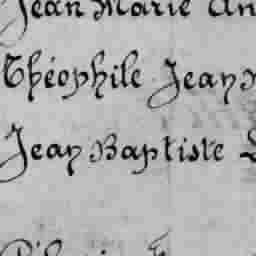 Jean Marie An
Théophile Jean
Jean Baptiste